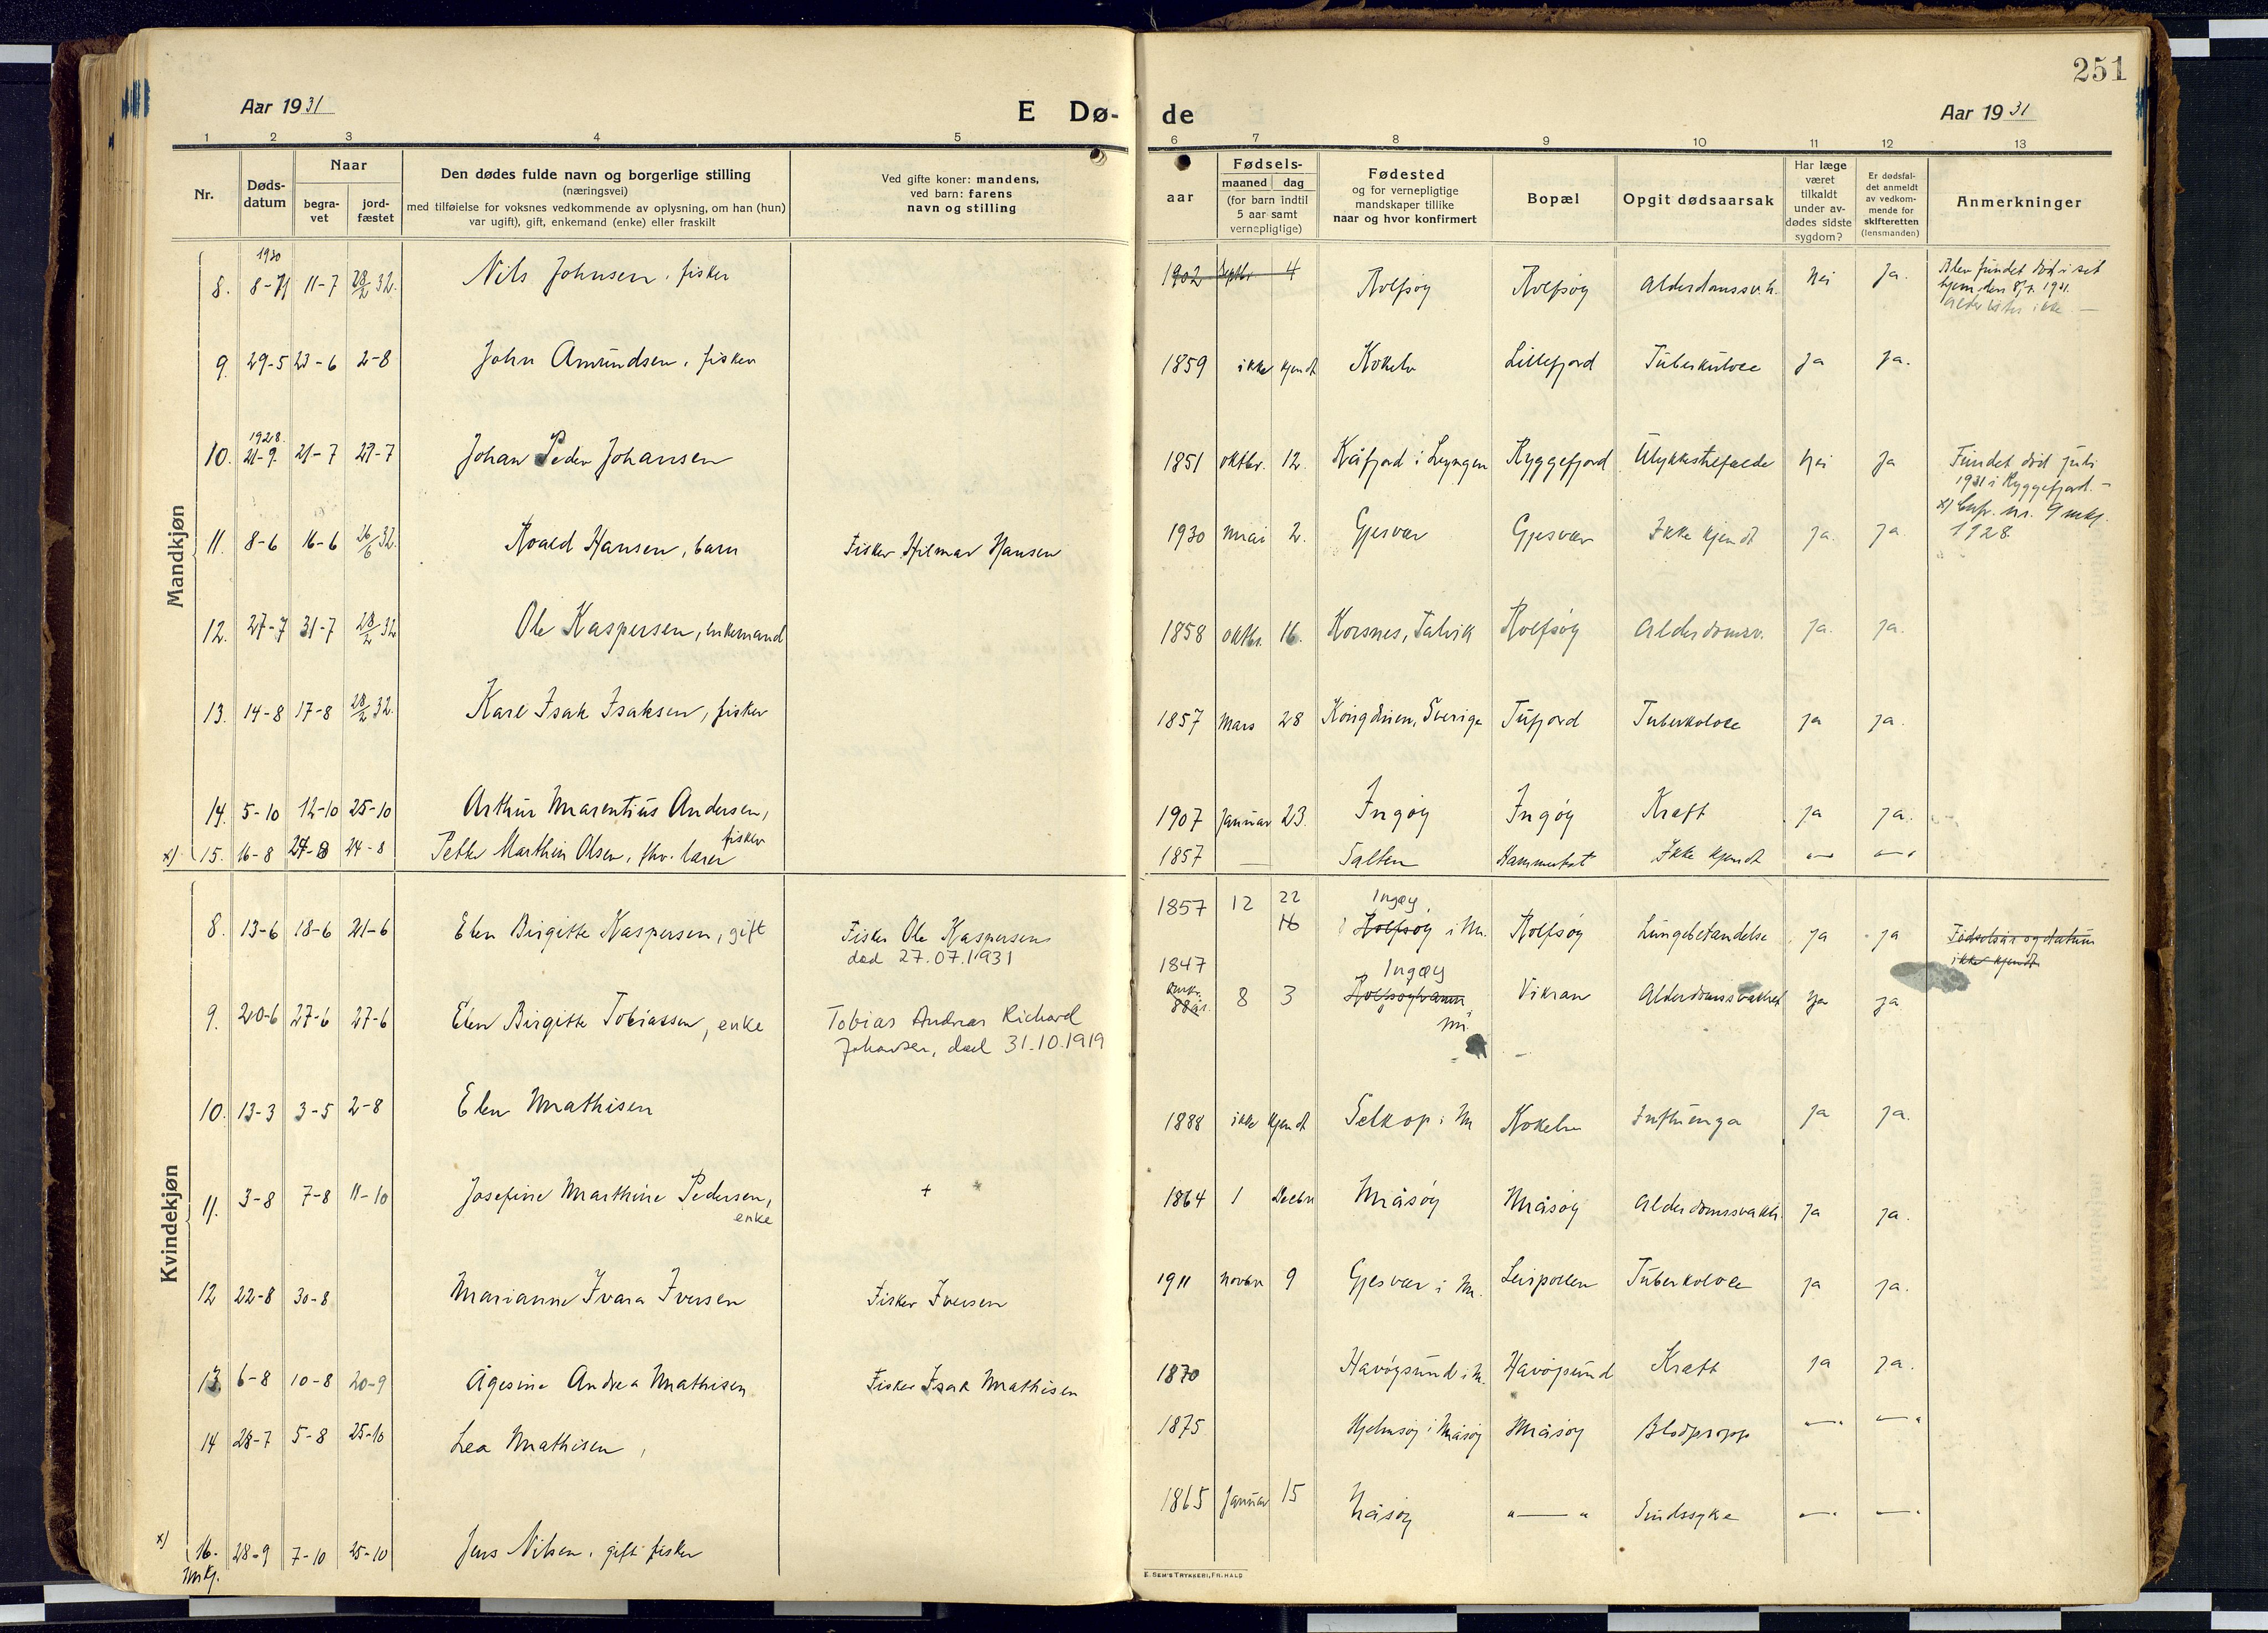 251
Aar 1931 E Dø- de Aar 1931
1 2 3 4 5 6 7 8 9 10 11 12 13
Nr.
Døds-
datum
Naar
begra-
vet
jord-
fæstet
Den dødes fulde navn og borgerlige stilling
(næringsvei)
med tilføielse for voksnes vedkommende av oplysning, om han (hun)
var ugift), gift, enkemand (enke) eller fraskilt
Ved gifte koner: mandens,
ved barn: farens
navn og stilling
aar
Fødsels-
maaned dag
(for barn indtil
5 aar samt
vernepligtige)
Fødested
og for vernepligtige
mandskaper tillike
naar og hvor konfirmert
Bopæl
Opgit dødsaarsak
Har læge
været
tilkaldt
under av-
dødes sidste
sygdom?
Er dødsfal-
det anmeldt
av vedkom-
mende for
skifteretten
(lensmanden)
Anmerkninger
Mandkjøn
1930
8. 8-71 11-7 28/2 32. Nils Johnsen, fisker 1902 Septbr 4 Rolfsøy Rolfsøy Alderdomssv.h. Nei Ja. Blev fundet død i sit
hjem den 8/7. 1931.
Alder vites ikke. —
9. 29-5 23-6 2-8 John Amundsen, fisker 1859 ikke kjendt Kokelv Lillefjord Tuberkulose ja ja.
1928.
10. 21-9. 21-7 27-7 Johan Peder Johansen 1851 oktbr. 12. Kåfjord i Lyngen Ryggefjord Ulykkestilfælde Nei Ja Fundet død juli
1931 i Ryggefjord. —
x) Cnfr. nr. 9 mkj.
1928
11. 8-6 16-6 26/6 32. Roald Hansen, barn Fisker Hilmar Hansen 1930 mai 2. Gjesvær Gjesvær Ikke kjendt ja. ja
12. 27-7 31-7 28/2 32 Ole Kaspersen, enkemand 1858 oktbr. 16. Korsnes, Talvik Rolfsøy Alderdomsv. ja. ja.
13. 14-8 17-8 28/2 32. Karl Isak Isaksen, fisker 1857 Mars 28 Sverige Tufjord Tuberkolose ja ja.
14. 5-10 12-10 25-10 Arthur Marentius Andersen,
fisker 1907 Januar 23. Ingøy Ingøy Kræft ja ja.
x) 15. 16-8 24-8 24-8 Petter Marthin Olsen, fhv. lærer 1857 — Salten Hammerfest Ikke kjendt "—" "—"
Kvindekjøn
8. 13-6 18-6 21-6 Elen Birgitte Kaspersen, gift Fisker Ole Kaspersen
død 27.07.1931 1857 12 22
16 Ingøy,
Rolfsøy i M. Rolfsøy Lungebetændelse ja ja Fødselsår og datum
ikke kjendt
9. 20-6 27-6 27-6 Elen Birgitte Tobiassen, enke Tobias Andreas Richard
Johansen, død 31.10.1919 1847
88 år. 8 3 Ingøy
Rolfsøyhavn
M. Vikran Alderdomssvakhet ja ja
10. 13-3 3-5 2-8 Elen Mathisen 1888 ikke kjendt Selkop i M Kokelv Influenza ja ja.
11. 3-8 7-8 11-10 Josefine Marthine Pedersen,
enke + * 1864 1 Decbr Måsøy Måsøy Alderdomssvakh. ja ja.
12 22-8 30-8 Marianne Ivara Iversen Fisker Iversen 1911 novbr 9 Gjesvær i M. Leirpollen Tuberkolose ja ja.
13. 6-8 10-8 20-9 Ågesine Andrea Mathisen Fisker Isak Mathisen 1870 Havøysund i M. Havøysund Kræft ja ja.
14 28-7 5-8 25-10 Lea Mathisen, 1875 Hjelmsøy i Måsøy Måsøy Blodpropp "—" "—"
x) 16. 28-9 7-10 25-10 Jens Nilsen, gift fisker 1865 Januar 15 Måsøy "—" Sindssyke "—" "—"
Mkj.
E. SEM'S TRYKKERI, FR.HALD